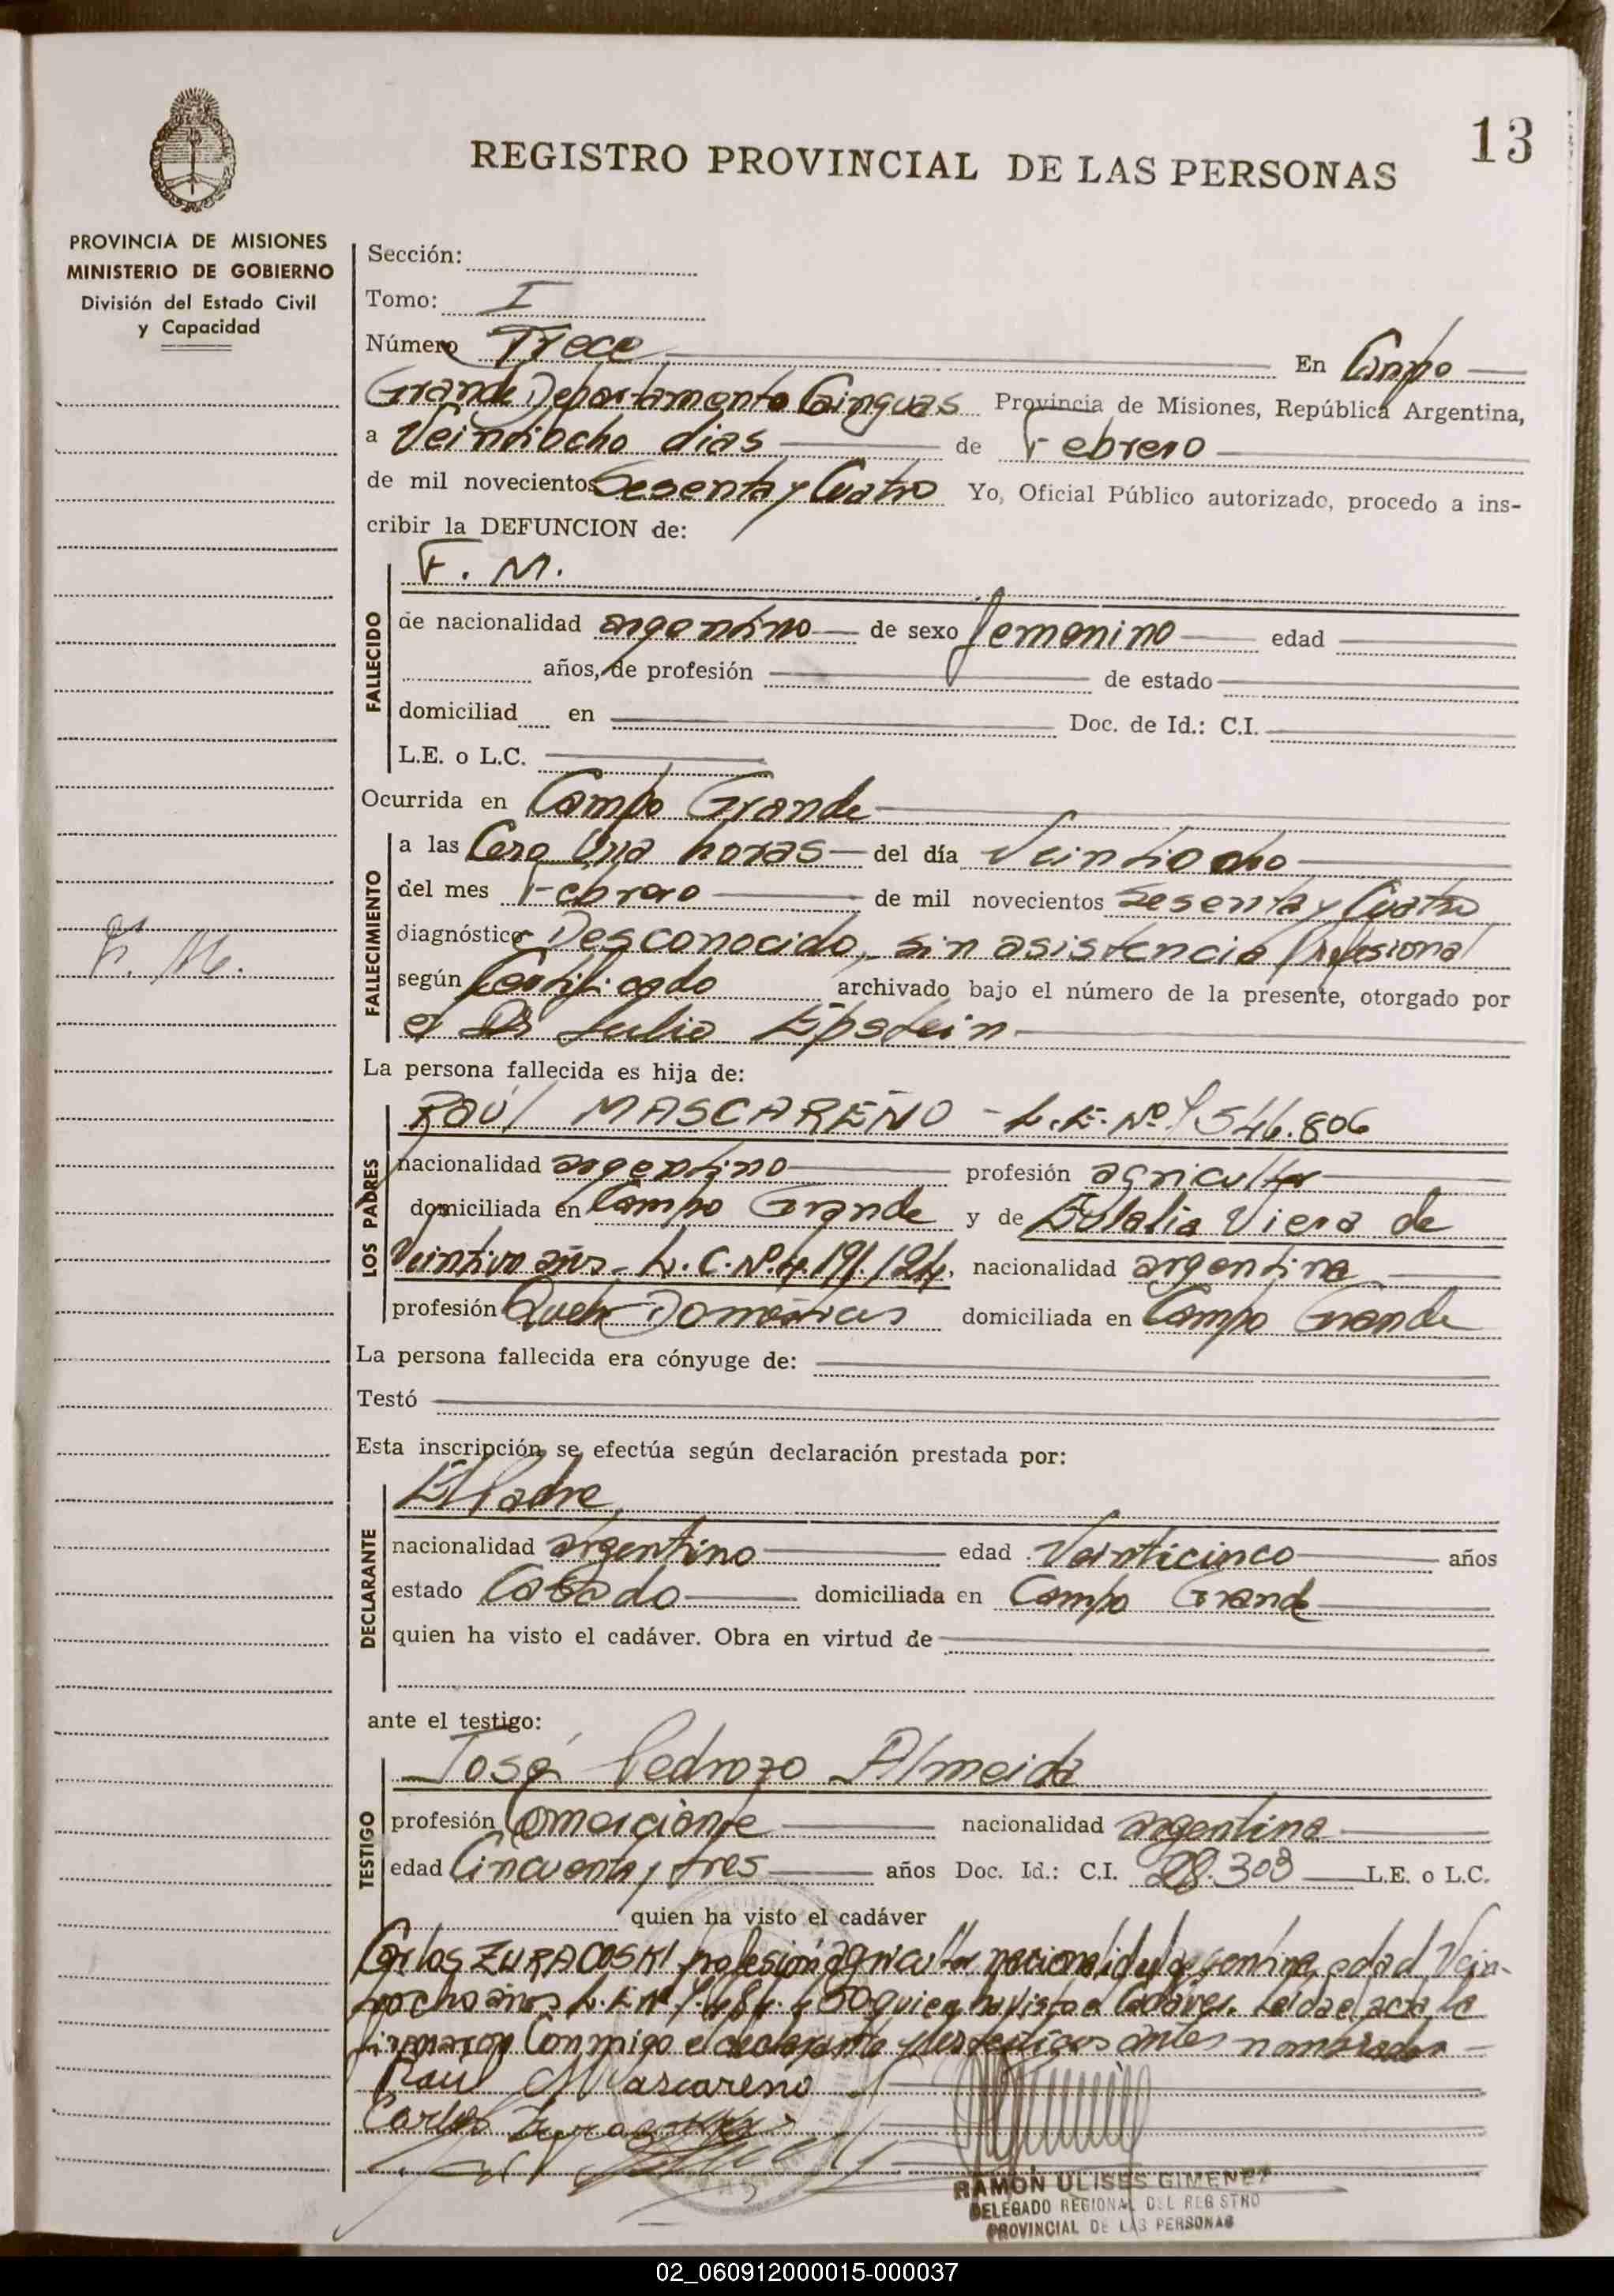 13
REGISTRO PROVINCIAL DE LAS PERSONAS
PROVINCIA DE MISIONES
MINISTERIO DE GOBIERNO
División del Estado Civil
y Capacidad
Sección:
Tomo: I
Número Trece En Campo
Grande Departamento Cainguas Provincia de Misiones, República Argentina,
a Veintiocho dias de Febrero
de mil novecientos Sesenta y Cuatro Yo, Oficial Público autorizado, procedo a ins-
cribir la DEFUNCION de:
F. M.
FALLECIDO
de nacionalidad argentino de sexo femenino edad
años, de profesión de estado
domiciliad en Doc. de Id.: C.I.
L.E. o L.C.
Ocurrida en Campo Grande
FALLECIMIENTO
a las Cero Una horas del día Veintiocho
del mes Febrero de mil novecientos Sesenta y Cuatro
diagnóstico Desconocido, sin asistencia Profesional
F. M.
según Certificado archivado bajo el número de la presente, otorgado por
el Dr Julio Epstein
La persona fallecida es hija de:
LOS PADRES
RAÚl MASCAREÑO - L.E. Nº 7.546.806
nacionalidad argentino profesión agricultor
domiciliada en Campo Grande y de Eulalia Viera de
Veintiun años - L.C. Nº. 4.191.124, nacionalidad argentina
profesión Queh. Domésticos domiciliada en Campo Grande
La persona fallecida era cónyuge de:
Testó
Esta inscripción se efectúa según declaración prestada por:
DECLARANTE
El Padre
nacionalidad argentino edad Veinticinco años
estado Casado domiciliada en Campo Grande
quien ha visto el cadáver. Obra en virtud de
ante el testigo:
TESTIGO
José Pedrozo Almeida
profesión Comerciante nacionalidad argentina
edad Cincuenta y tres años Doc. Id.: C.I. 28.303 L.E. o L.C.
quien ha visto el cadáver
Carlos ZURACOSKI profesión agricultor nacionalidad argentina, edad Vein-
tiocho años L.E. Nº quien ha visto el Cadáver. Leida el acta la
firmaron Conmigo el declarante y los testigos antes nombrados
Raul Mascareño
Carlos
RAMÓN ULISES GIMENEZ
DELEGADO REGIONAL DEL REGISTRO
PROVINCIAL DE LAS PERSONAS
02_060912000015-000037